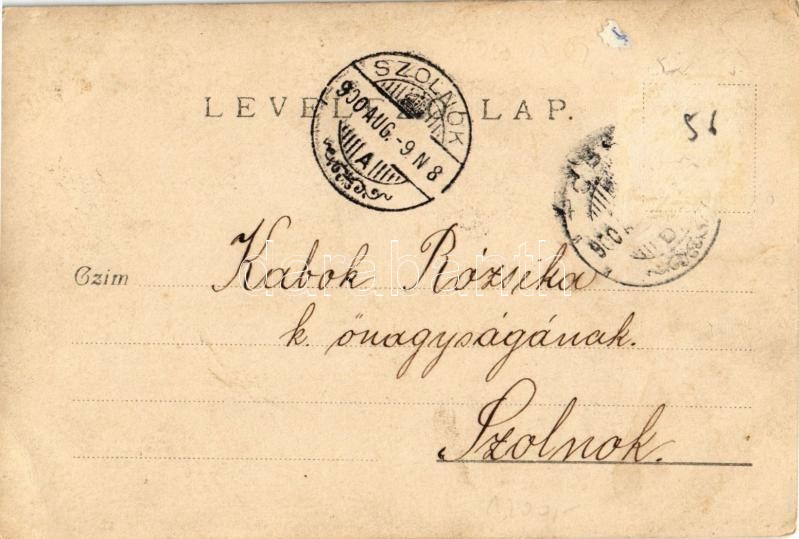 LEVELEZŐ-LAP.
SZOLNOK
900 AUG. -9. N 8
A
900 A
D
51
Czim
Kabok Rózsika
k. önagyságának.
Szolnok.
darabanth